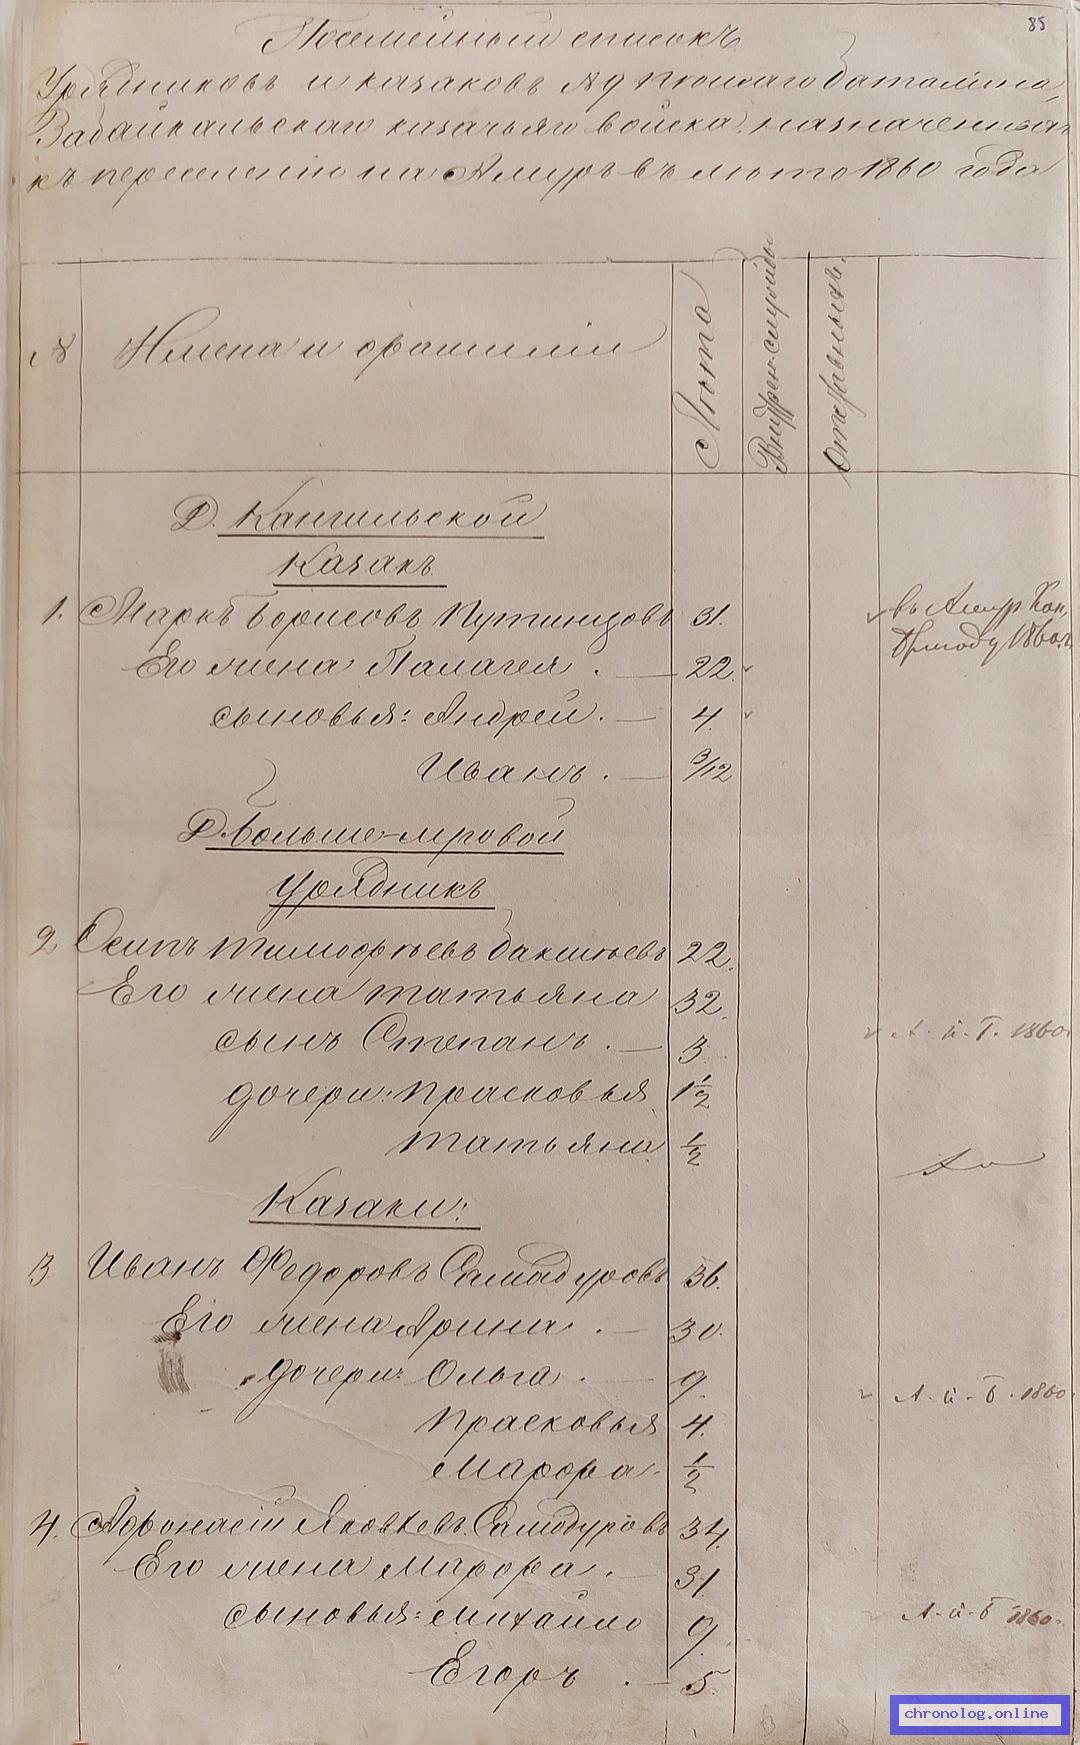 85
Посемейный списокъ
Урядниковъ и казаковъ №9 пешаго баталіона,
Забайкальскаго казачьяго войска, назначенныхъ
къ переселенію на Амуръ въ лето 1860 года
№
Имена и фамиліи
Лета
Внутрен. службы
Отставныхъ.
Д. Кангильской
Казакъ
1. Маркъ Борисовъ Путинцовъ 31.
въ Амур. Кон.
бригаду 1860 г.
Его жена Палагея . — 22.
сыновья: Андрей . — 4.
Иванъ . — 3/12
Д. Больше-
Урядникъ
2 Осипъ Тимофеевъ Бакшеевъ 22.
Его жена Татьяна 32.
сынъ Степанъ . — 3
А. п. б. 1860.
дочери: Прасковья 1 1/2
Татьяна 1/2
Казаки:
3 Иванъ Федоровъ Самодуровъ 36.
Его жена Арина . — 30.
дочери: Ольга . — 9.
А. п. б. 1860
Прасковья 4.
Марфа . 1/2
4. Афонасій Яковлевъ Самодуровъ 34.
Его жена Марфа . — 31.
сыновья: Михайло 9.
А. п. б 1860.
Егоръ . — 5.
chronolog.online